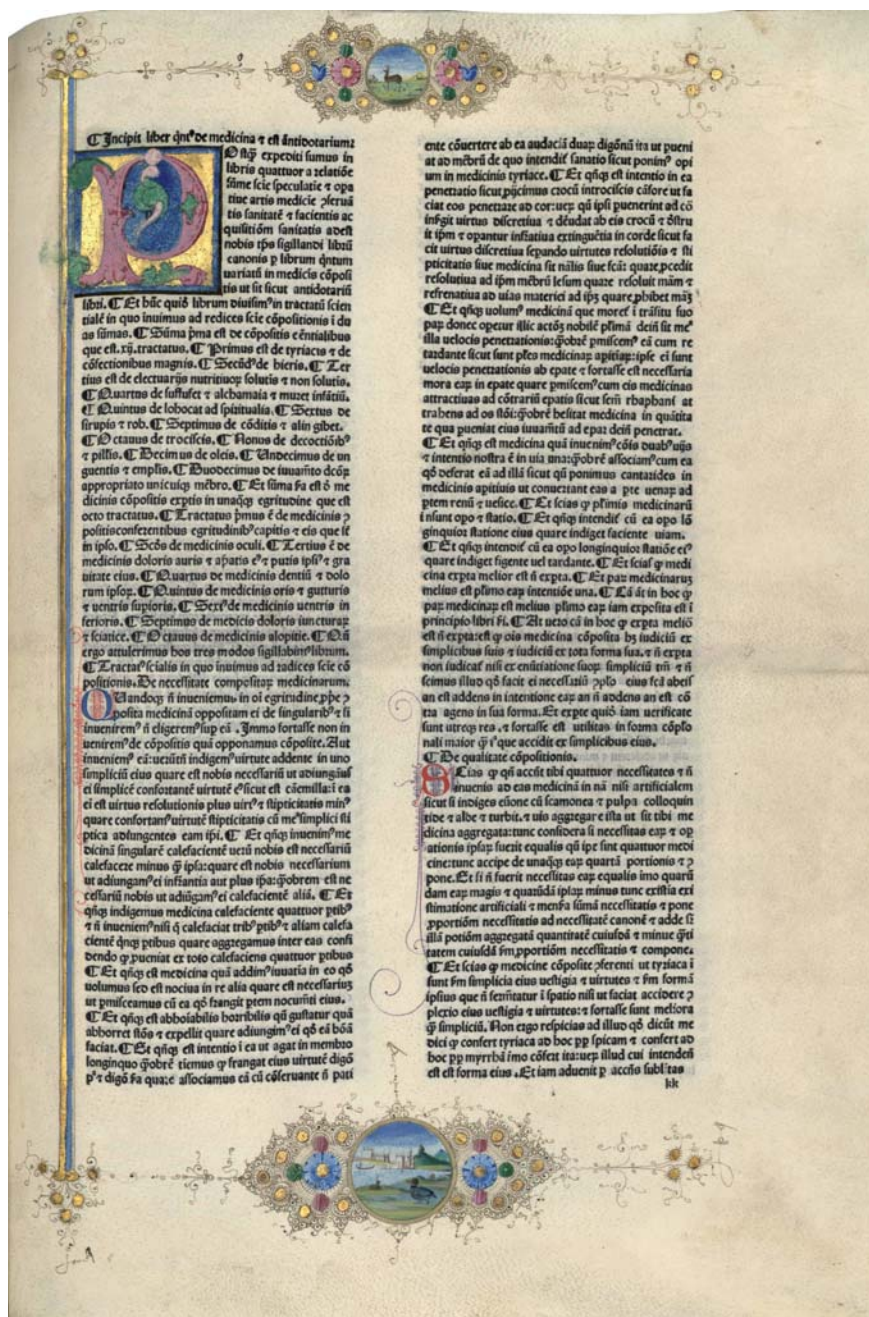 ¶ Incipit liber q̄ntꝰ de medicina ⁊ est ātidotarium:
P Ostq̄ꝫ expediti sumus in
libris quattuor a relatiōe
sūme scīe speculatie ⁊ opa
tiue artis medicīe ꝯserua
tis sanitatē ⁊ facientis ac
quisitiōm sanitatis adest
nobis tp̄s sigillandi librū
canonis p librum q̄ntum
uariatū in medicīs cōposi
tis ut sit sicut antidotariū
libri. ¶ Et hūc quiō librum diuisimꝰ in tractatū scien
tialē in quo inuimus ad redices scīe cōpositionis ī du
as sūmas. ¶ Sūma p̄ma est de cōpositis
que est .xij. tractatus. ¶ Primus est de tyriacis ⁊ de
cōfectionibus magnis. ¶ Secūdꝰ de hieris. ¶ Ter
tius est de electuarijs nutritiuoꝝ solutis ⁊ non solutis.
¶ Quartus de suffufet ⁊ alchamaia ⁊ muzet infātiū.
¶ Quintus de lohocat ad spiritualia. ¶ Sextus de
sirupis ⁊ rob. ¶ Septimus de cōditis ⁊ alin gibet.
¶ Octauus de trociscis. ¶ Nonus de decoctiōibꝰ
⁊ pillis. ¶ Decimus de oleis. ¶ Undecimus de un
guentis ⁊ emplis. ¶ Duodecimus de iuuamīto
appropriato unicuiqꝫ mēbro. ¶ Et sūma est ō me
dicinis cōpositis exptis in unaq̄qꝫ egritudine que est
octo tractatus. ¶ Tractatus p̄mus ē de medicinis ꝯ
positis conferentibus egritudinibꝰ capitis ⁊ eis que sē
in ipso. ¶ Scōs de medicinis oculi. ¶ Tertius ē de
medicinis doloris auris ⁊ apatis eꝰ ⁊ putis ipsiꝰ ⁊ gra
uitate eius. ¶ Quartus de medicinis dentiū ⁊ dolo
rum ipsoꝝ. ¶ Quintus de medicinis oris ⁊ gutturis
⁊ uentris supioris. ¶ Sextꝰ de medicinis uentris in
ferioris. ¶ Septimus de medicīs doloris iuncturaꝝ
⁊ sciatice. ¶ Octauus de medicinis alopitie. ¶ Qn̄
ergo attulerimus hos tres modos sigillabimꝰ librum.
¶ Tractatꝰ scīalis in quo inuimus ad radices scīe cō
positionis. De necessitate compositaꝝ medicinarum.
Q Uandoqꝫ n̄ inueniemus in oī egritudine
posita medicinā oppositam ei de singularibꝰ ⁊ si
inueniremꝰ n̄ eligeremꝰ sup eā. Immo fortasse non in
ueniremꝰ de cōpositis quā opponamus cōposite. Aut
inueniemꝰ eā: uerūtn̄ indigemꝰ uirtute addente in uno
simpliciū eius quare est nobis necessariū ut adiungāꝰ
ei simplicē confortantē uirtutē eꝰ sicut est cāemilla: ī ea
ei est uirtus resolutionis plus uirtꝰ ⁊ stipticitatis minꝰ
quare confortamꝰ uirtutē stipticitatis cū simplici sti
ptica adiungentes eam ip̄i. ¶ Et qn̄qꝫ inuenimꝰ me
dicinā singularē calefacientē uerū nobis est necessariū
calefacere minus q̄ ipsa: quare est nobis necessarium
ut adiungamꝰ ei infrīantia aut plus ip̄a: q̄obrem est ne
cessariū nobis ut adiūgamꝰ ei calefacientē aliā. ¶ Et
qn̄qꝫ indigemus medicina calefaciente quattuor ptibꝰ
⁊ n̄ inuenimꝰ nisi q̄ calefaciat tribꝰ ptibꝰ ⁊ aliam calefa
cientē q̄nqꝫ ptibus quare aggregamus inter eas confi
dendo ꝙ ꝓueniat ex toto calefaciens quattuor ptibus
¶ Et qn̄qꝫ est medicina quā addimꝰ iuuatia in eo qō
uolumus sed est nociua in re alia quare est necessariuꝫ
ut pmisceamus cū ea qō frangit ptem nocumīti eius.
¶ Et qn̄qꝫ est abhoiabilis horribilis qū gustatur quā
abhorret stōs ⁊ expellit quare adiungimꝰ ei qō eā bōā
faciat. ¶ Et qn̄qꝫ est intentio ī ea ut agat in membro
longinquo q̄obrē tiemus ꝙ frangat eius uirtutē digō
pꝰ ⁊ digō quare associamus eā cū cōseruante n̄ pati
ente cōuertere ab ea audaciā duaꝝ digōnū ita ut pueni
at ad mēbrū de quo intendiť sanatio sicut ponimꝰ opi
um in medicinis tyriace. ¶ Et qn̄qꝫ est intentio in ea
penetratio sicut ꝓijcimus crocū ī trociscis cāfore ut fa
ciat eos penetrare ad cor: ueꝝ qū ipsi puenerint ad cō
infrīgit uirtus discretiua ⁊ dēudat ab eis crocū ⁊ ōstru
it ip̄m ⁊ opantur infrīatiua extinguētia in corde sicut fa
cit uirtus discretiua sepando uirtutes resolutiōis ⁊ sti
pticitatis siue medicina sit nālis siue fcā: quare ꝓcedit
resolutiua ad ip̄m mēbrū lesum quare resoluit mām ⁊
refrenatiua ad uias materiei ad ip̄ꝫ quare ꝓhibet māꝫ
¶ Et qn̄qꝫ uolumꝰ medicinā que moreť ī trāsitu suo
paꝝ donec opetur illic actōꝫ nobilē deīn sit
illa uelocis penetrationis: q̄obrē pmiscemꝰ eā cum re
tardante sicut sunt medicinaꝝ apitiaꝝ: ipse ei sunt
uelocis penetrationis ab epate ⁊ fortasse est necessaria
mora eaꝝ in epate quare pmiscemꝰ cum eis medicinas
attractiuas ad cōtrariū epatis sicut semī rhaphani at
trahens ad os stōi: q̄obrē hesitat medicina in quātita
te qua pueniat eius iuuamtū ad epaꝛ deīn penetrat.
¶ Et qn̄qꝫ est medicina quā inuenimꝰ cōis duabꝰ uijs
⁊ intentio nostra ē in uia una: q̄obrē associamꝰ cum ea
qō deferat eā ad illā sicut qū ponimus cantarides in
medicinis apitiuis ut conuertant eas a pte uenaꝝ ad
ptem renū ⁊ uesice. ¶ Et scias ꝙ medicinarū
ī nsunt opo ⁊ statio. ¶ Et qn̄qꝫ intendiť cū ea opo lō
ginquioꝛ statione eius quare indiget faciente uiam.
¶ Et qn̄qꝫ intendiť cū ea opo longinquioꝛ statiōe eiꝰ
quare indiget figente uel tardante. ¶ Et sciaſ ꝙ medi
cina expta melior est n̄ expta. ¶ Et paꝝ medicinaruꝫ
melius est eaꝝ intentiōe una. ¶ Cā āt in hoc ꝙ
paꝝ medicinaꝝ est melius eaꝝ iam exposita est ī
principio libri. ¶ At uero cā in hoc ꝙ expta melioꝛ
est n̄ expta: est ꝙ oīs medicina cōposita hꝫ iudiciū ex
simplicibus suis ⁊ iudiciū ex tota forma sua. ⁊ n̄ expta
non iudicať nisi ex enūciatione suoꝝ simpliciū tm̄ ⁊ n̄
scimus illud qō facit ei necessariū eius
an est addens in intentione eaꝝ an n̄ addens an est cō
tra agens in sua forma. ¶ Et expte quiō iam uerificate
sunt utreqꝫ res. ⁊ fortasse est utilitas in forma
nali maior q̄ que accidit ex simplicibus eius.
¶ De qualitate cōpositionis.
S Cias ꝙ qn̄ accūt tibi quattuor necessitates ⁊ n̄
inuenio ad eas medicinā in nā nisi artificialem
sicut si indiges cū scamonea ⁊ pulpa colloquin
tide ⁊ aloe ⁊ turbit. ⁊ uis aggregare ista ut sit tibi me
dicina aggregata: tunc considera si necessitas eaꝝ ⁊ op
ationis ipsaꝝ fuerit equalis qū ip̄e sint quattuor medi
cine: tunc accipe de unaq̄qꝫ eaꝝ quartā portionis ⁊ ꝯ
pone. Et si n̄ fuerit necessitas eaꝝ equalis imo quarū
dam eaꝝ magis ⁊ quarūdā ipsaꝝ minus tunc existīa exi
stimatione artificiali ⁊ mensura sūmā necessitatis ⁊ pone
ꝓportiōm necessitatis ad necessitatē canonē ⁊ adde sī
illā potiōm aggregatā quantitatē cuiusdā ⁊ minue q̄nti
tatem cuiusdā fm̄ ꝓportiōm necessitatis ⁊ compone.
¶ Et scias ꝙ medicine cōposite ꝯferenti ut tyriaca ī
sunt fm̄ simplicia eius uestigia ⁊ uirtutes ⁊ fm̄ formā
ipsius que n̄ fermītatur ī spatio nisi ut faciat accidere ꝯ
plexio eius uestigia ⁊ uirtutes: ⁊ fortasse sunt meliora
q̄ simpliciū. Non ergo respicias ad illud qō dicūt me
dici ꝙ confert tyriaca ad hoc pp̄ spicam ⁊ confert ad
hoc pp̄ myrrhā imo cōfert ita: ueꝝ illud cui intendeň
est est forma eius. Et iam aduenit p accn̄s sublītas
kk